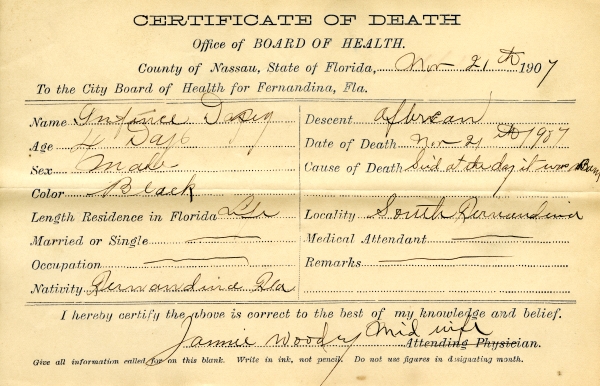 CERTIFICATE OF DEATH
Office of BOARD OF HEALTH.
County of Nassau, State of Florida, Nov 21th 1907
To the City Board of Health for Fernandina, Fla.
Name
Age 4 Days
Sex Male
Color Black
Length Residence in Florida
Married or Single
Occupation
Nativity Fernandina Fla
Descent
Date of Death Nov 21th 1907
Cause of Death at the day it was
Locality South Fernandina
Medical Attendant
Remarks
I hereby certify the above is correct to the best of my knowledge and belief.
Woody Mid wife
Attending Physician.
Give all information called for on this blank. Write in ink, not pencil. Do not use figures in disignating month.